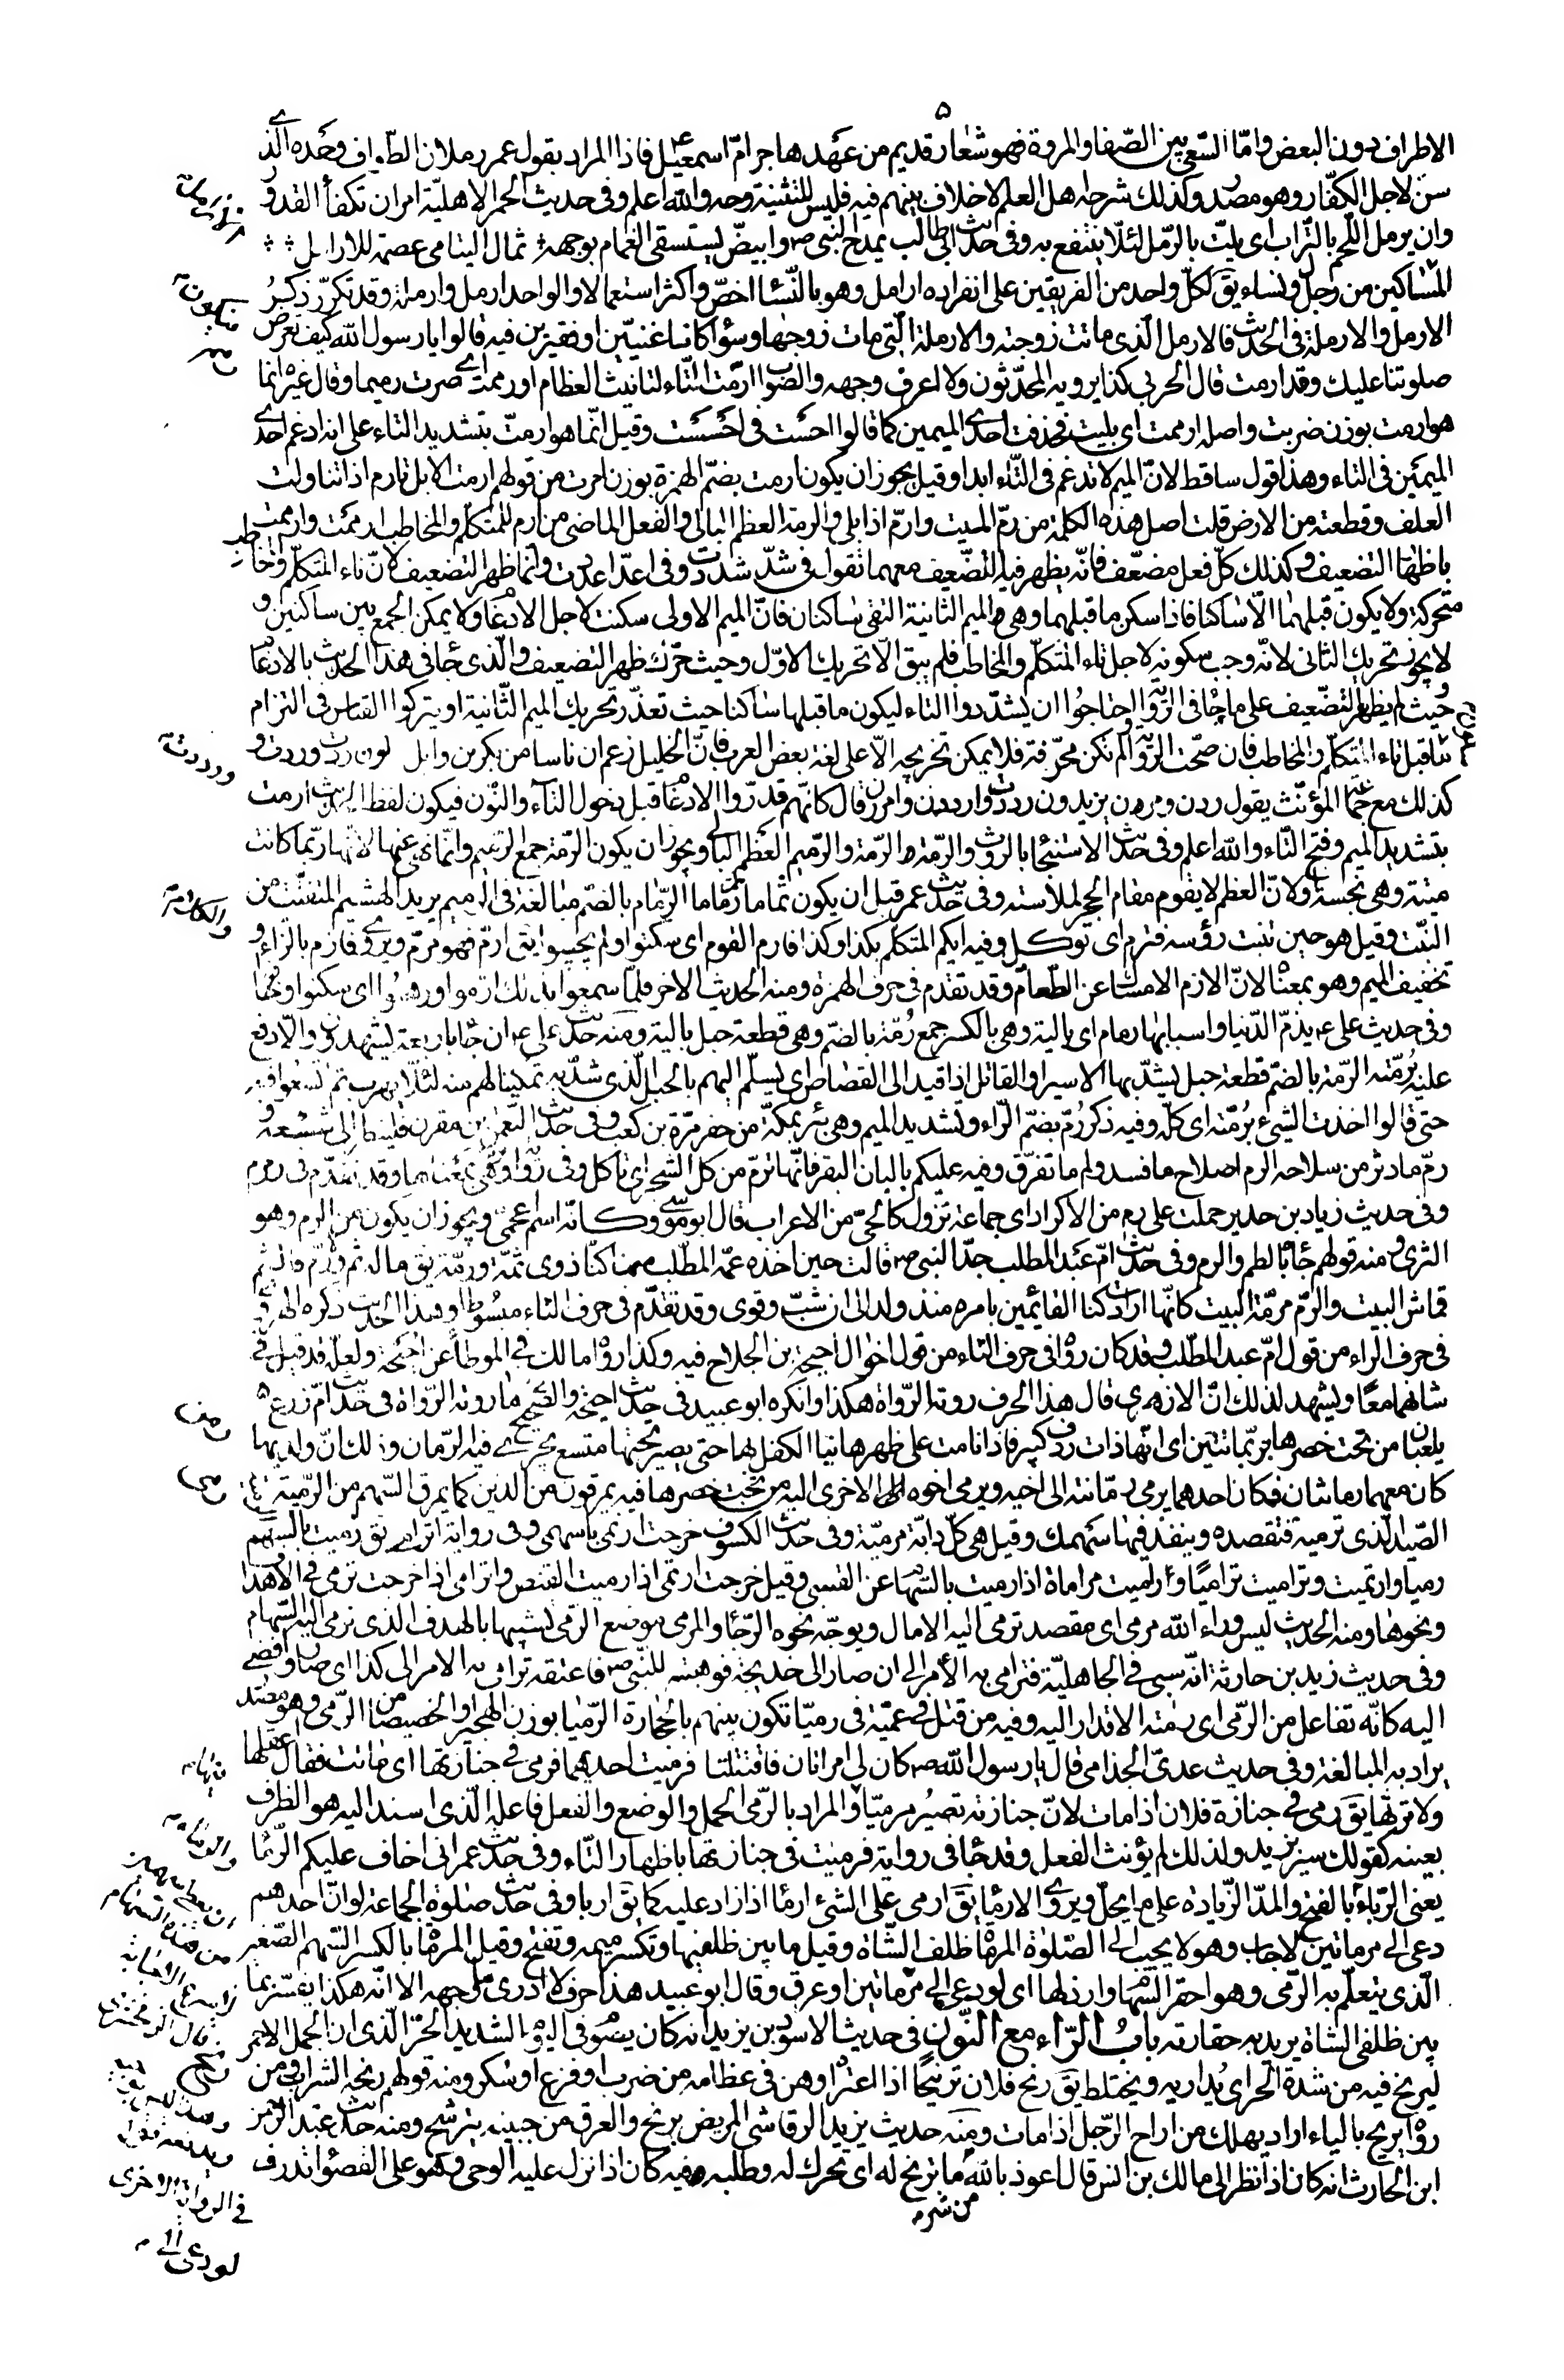 ٥
الاطراف دون البعض وامّا السّعى بين الصّفا والمروة فهو شعار قديم من عهد هاجر امّ اسمعيل ع فاذا المراد بقول عمر رملان الطّواف وحده الّذى
سنّ لاجل الكفّار وهو مصدر وكذلك شرحه اهل العلم لا خلاف بينهم فيه فليس للتثنية وجه والله اعلم وفى حديث الحمر الاهليّة امر ان تكفأ القدور
وان يرمل اللّحم بالتّراب اى يلتّ بالرّمل لئلّا ينتفع به وفى حديث ابى طالب يمدح النبى ص وابيضّ يستسقى الغمام بوجهه ثمال اليتامى عصمة للارامل
المساكين من رجل ونساء يق لكلّ واحد من الفريقين على انفراده ارامل وهو بالنّساء اخصّ واكثر استعمالا والواحد ارمل وارملة وقد تكرّر ذكر
الارمل والارملة فى الحديث فالارمل الّذى ماتت زوجته والارملة الّتى مات زوجها وسواء كانا غنيّين او فقيرين فيه قالوا يا رسول الله كيف تعرض
صلوتنا عليك وقد ارمت قال الحربى كذا يرويه المحدّثون ولا اعرف وجهه والصّواب ارمّت التّاء لتانيث العظام او رممت اى صرت رميما وقال غيره انّما
هو ارمت بوزن ضربت واصله ارممت اى بليت فحذفت احدى الميمين كما قالوا احست فى احسست وقيل انّما هو ارمتّ بتشديد التاء على انه ادغم احدى
الميمين فى التاء وهذا قول ساقط لانّ الميم لا تدغم فى التّاء ابدا وقيل يجوز ان يكون ارمت بضمّ الهمزة بوزن امرت من قولهم ارمت الابل تارم اذا تناولت
العلف وقطعته من الارض قلت اصل هذه الكلمة من رمّ الميت وارمّ اذا بلى والرمة العظم البالى والفعل الماضى من ارم للمتكلّم والمخاطب ارممت وارممت
باظهار التضعيف وكذلك كلّ فعل مضعّف فانّه يظهر فيه التضّعيف معهما تقول فى شدّ شددت وفى اعدّ اعددت وانّما ظهر التضعيف لانّ تاء المتكلّم والمخاطب
متحركة ولا يكون قبلهما الّا ساكنا فاذا سكن ما قبلهما وهى الميم الثانية التقى ساكنان فانّ الميم الاولى سكنت لاجل الادغام ولا يمكن الجمع بين ساكنين و
لا يجوز تحريك الثانى لانّه وجب سكونه لاجل تاء المتكلّم والمخاطب فلم يبق الّا تحريك الاوّل وحيث حرّك ظهر التضعيف والّذى جاء فى هذا الحديث بالادغام
وحيث لم يظهر التضّعيف على ما جاء فى الرّواية احتاجوا ان يشدّدوا التاء ليكون ما قبلها ساكنا حيث تعذّر تحريك الميم الثّانية او يتركوا القياس فى التزام
ما قبل تاء المتكلّم والمخاطب فان صحّت الرّواية ولم تكن محرّفة فلا يمكن تخريجه الّا على لغة بعض العرب فانّ الخليل زعم ان ناسا من بكر بن وايل يقولون ردت وردت و
كذلك مع جماعة المؤنّث يقول ردن ومرن يريدون رددت وارددن وامررن قال كانّهم قدّروا الادغام قبل دخول التآء والنّون فيكون لفظ الحديث ارمت
بتشديد الميم وفتح التّاء والله اعلم وفى حديث الاستنجاء بالروث والرّمة الرّمة والرّميم العظم البالى ويجوز ان يكون الرّمة جمع الرّميم وانّما نهى عنها لانّها ربّما كانت
ميتة وهى نجسة او لانّ العظم لا يقوم مقام الحجر لملاسته وفى حديث عمر قبل ان يكون ثماما ثمّ رماما الرّمام بالضّم مبالغة فى الرميم يريد الهشيم المتفتّت من
النبت وقيل هو حين تنبت رؤسه فترم اى توكل وفيه ايكم المتكلّم بكذا وكذا فارم القوم اى سكتوا ولم يجيبوا يق ارمّ فهو مرمّ ويروى فازم بالزاء و
تخفيف الميم وهو بمعناه لانّ الازم الامساك عن الطّعام وقد تقدّم فى حرف الهمزة ومنه الحديث الاخر فلمّا سمعوا بذلك ارموا ورهبوا اى سكتوا وخافوا
وفى حديث على ع يذمّ الدّنيا واسبابها رمام اى بالية وهى بالكسر جمع رُمّة بالضم وهى قطعة حبل بالية ومنه حديث على ع ان جاء باربعة يشهدون والّا دفع
عليه برُمّته الرّمة بالضمّ قطعة حبل يشدّ بها الاسير او القاتل اذا قيد الى القصاص اى يسلّم اليهم بالحبل الّذى شدّ به تمكينا لهم منه لئلّا يهرب ثمّ اتسعوا فيه
حتى قالوا اخذت الشىء برُمّته اى كلّه وفيه ذكر رُمّ بضمّ الرّاء وتشديد الميم وهى بئر بمكّة من حفر مرّة بن كعب وفى حديث النّعمان بن مقرن فلينظر الى شسعه و
رمّ ما دثر من سلاحه الرم اصلاح ما فسد ولم ما تفرّق وفيه عليكم بالبان البقر فانّها ترمّ من كل الشجر اى تاكل وفى رواية ترتم وهى بمعناهما وقد تقدّم فى رمرم
وفى حديث زياد بن حدير حملت على رم من الاكراد اى جماعة نزول كالحىّ من الاعراب قال ابو موسى وكانّه اسم عجمى ويجوز ان يكون من الرم وهو
الثرى ومنه قولهم جاء بالطم والرم وفى حديث امّ عبد المطلب جدّ النبى ص قالت حين اخذه عمّه المطّلب منها كنّا ذوى ثمّة ورمّة يق ماله ثم ولا رمّ فالثم
قماش البيت والرّم مرمّة البيت كانّها ارادت كنا القائمين بامره منذ ولد الى ان شبّ وقوى وقد تقدّم فى حرف الثاء مبسوطا وهذا الحديث ذكره الهروى
فى حرف الراء من قول امّ عبد المطّلب وقد كان رواه فى حرف الثاء من قول اخوال احيحة بن الجلاح فيه وكذا رواه مالك فى الموطأ عن احيحة ولعلّه قد قيل فى
شانهما معًا ويشهد لذلك انّ الازهرى قال هذا الحرف روته الرّواة هكذا وانكره ابو عبيد فى حديث احيحة والصّحيح ما روته الرّواة فى حديث امّ زرع
يلعبان من تحت خصرها برمّانتين اى انّها ذات ردف كبير فاذا نامت على ظهرها نبا الكفل لها حتى يصير تحتها متسع يجرى فيه الرّمان وذلك انّ ولديها
كان معهما رمانتان فكان احدهما يرمى رمّانته الى اخيه ويرمى اخوه الاخرى اليه من تحت خصرها فيه يمرقون من الدين كما يمرق السّهم من الرّميّة
الصّيد الّذى ترميه فتقصده وينفذ فيها سهمك وقيل هى كلّ دابّة مرميّة وفى حديث الكسوف خرجت ارتمى باسهمى وفى رواية اترامى يق رميت بالسّهم
رميا وارتميت وتراميت تراميًا وراميت مراماة اذا رميت بالسّهام عن القسى وقيل خرجت ارتمى اذا رميت القنص واترامى اذا خرجت ترمى فى الاهداف
ونحوها ومنه الحديث ليس وراء الله مرمى اى مقصد ترمى اليه الامال ويوجّه نحوه الرّجاء والمرمى موضع الرّمى تشبيها بالهدف الذى ترمى اليه السّهام
وفى حديث زيد بن حارثة انّه سبى فى الجاهليّة فترامى به الأمر الى ان صار الى خديجة فوهبته للنّبى ص فاعتقه ترامى به الامر الى كذا اى صار وافضى
اليه كانّه تفاعل من الرّمى اى رمته الاقدار اليه وفيه من قتل فى عميّة فى رميّا تكون بينهم بالحجارة الرّميّا بوزن الهجيرا والخصيصا من الرّمى وهو مصدر
يراد به المبالغة وفى حديث عدىّ الجذامى قال يا رسول الله ص كان لى امراتان فاقتتلتا فرميت احديهما فرمى فى جنازتها اى ماتت فقال اعقلها
ولا ترثها يق رمى فى جنازة فلان اذا مات لانّ جنازته تصير مرميّا والمراد بالرّمى الحمل والوضع والفعل فاعله الّذى اسند اليه هو الظرف
بعينه كقولك سير بزيد ولذلك لم يؤنث الفعل وقد جاء فى رواية فرميت فى جنازتها باظهار التّاء وفى حديث عمر انى اخاف عليكم الرّما
يعنى الرّباء بالفتح والمدّ الزّيادة على ما يحلّ ويروى الارماء يق ارمى على الشىء ارماء اذا زاد عليه كما يق اربا وفى حديث صلوة الجماعة لو انّ احدهم
دعى الى مرماتين لاجاب وهو لا يجيب الى الصّلوة المرماة ظلف الشّاة وقيل ما بين ظلفيها وتكسر ميمه وتفتح وقيل المرماة بالكسر السّهم الصّغير
الّذى يتعلّم به الرّمى وهو احقر السّهام وارذلها اى لو دعى الى مرماتين او عرق وقال ابو عبيد هذا حرف لا ادرى ما وجهه الا انّه هكذا يفسّر بما
بين ظلفى الشاة يريد به حقارته بابُ الرّاء مع النّون فى حديث الاسود بن يزيد انه كان يصوم فى اليوم الشديد الحرّ الّذى ان الجمل الاحمر
ليرنح فيه من شدة الحر اى يُدار به ويختلط يق رنح فلان ترنيحًا اذا اعتراه وهن فى عظامه من ضرب او فزع او سكر ومنه قولهم رنحه الشراب ومن
رواه يريح بالياء اراد يهلك من اراح الرّجل اذا مات ومنه حديث يزيد الرقاشى المريض يرنح والعرق من جبينه يترشح ومنه حديث عبد الرّحمن
ابن الحارث انه كان اذا نظر الى مالك بن انس قال اعوذ بالله ما ترنح له اى تحرك له وطلبه وفيه كان اذا نزل عليه الوحى وهو على القصواء تذرف
من شره
يقولون
ورددت
فى الرواية الاخرى
لو دعى الى